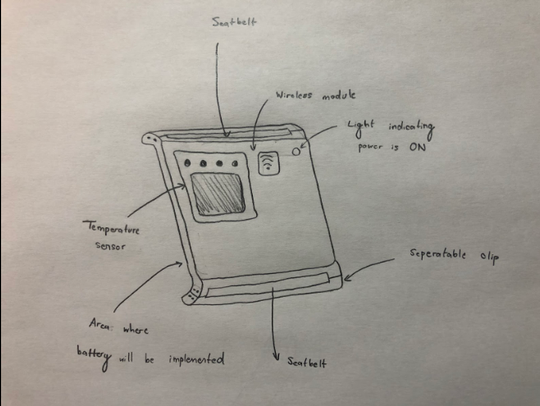 Seatbelt
Wireless module
Light indicating
power is ON
Temperature
sensor
Seperatable clip
Area: where
battery will be implemented
Seatbelt